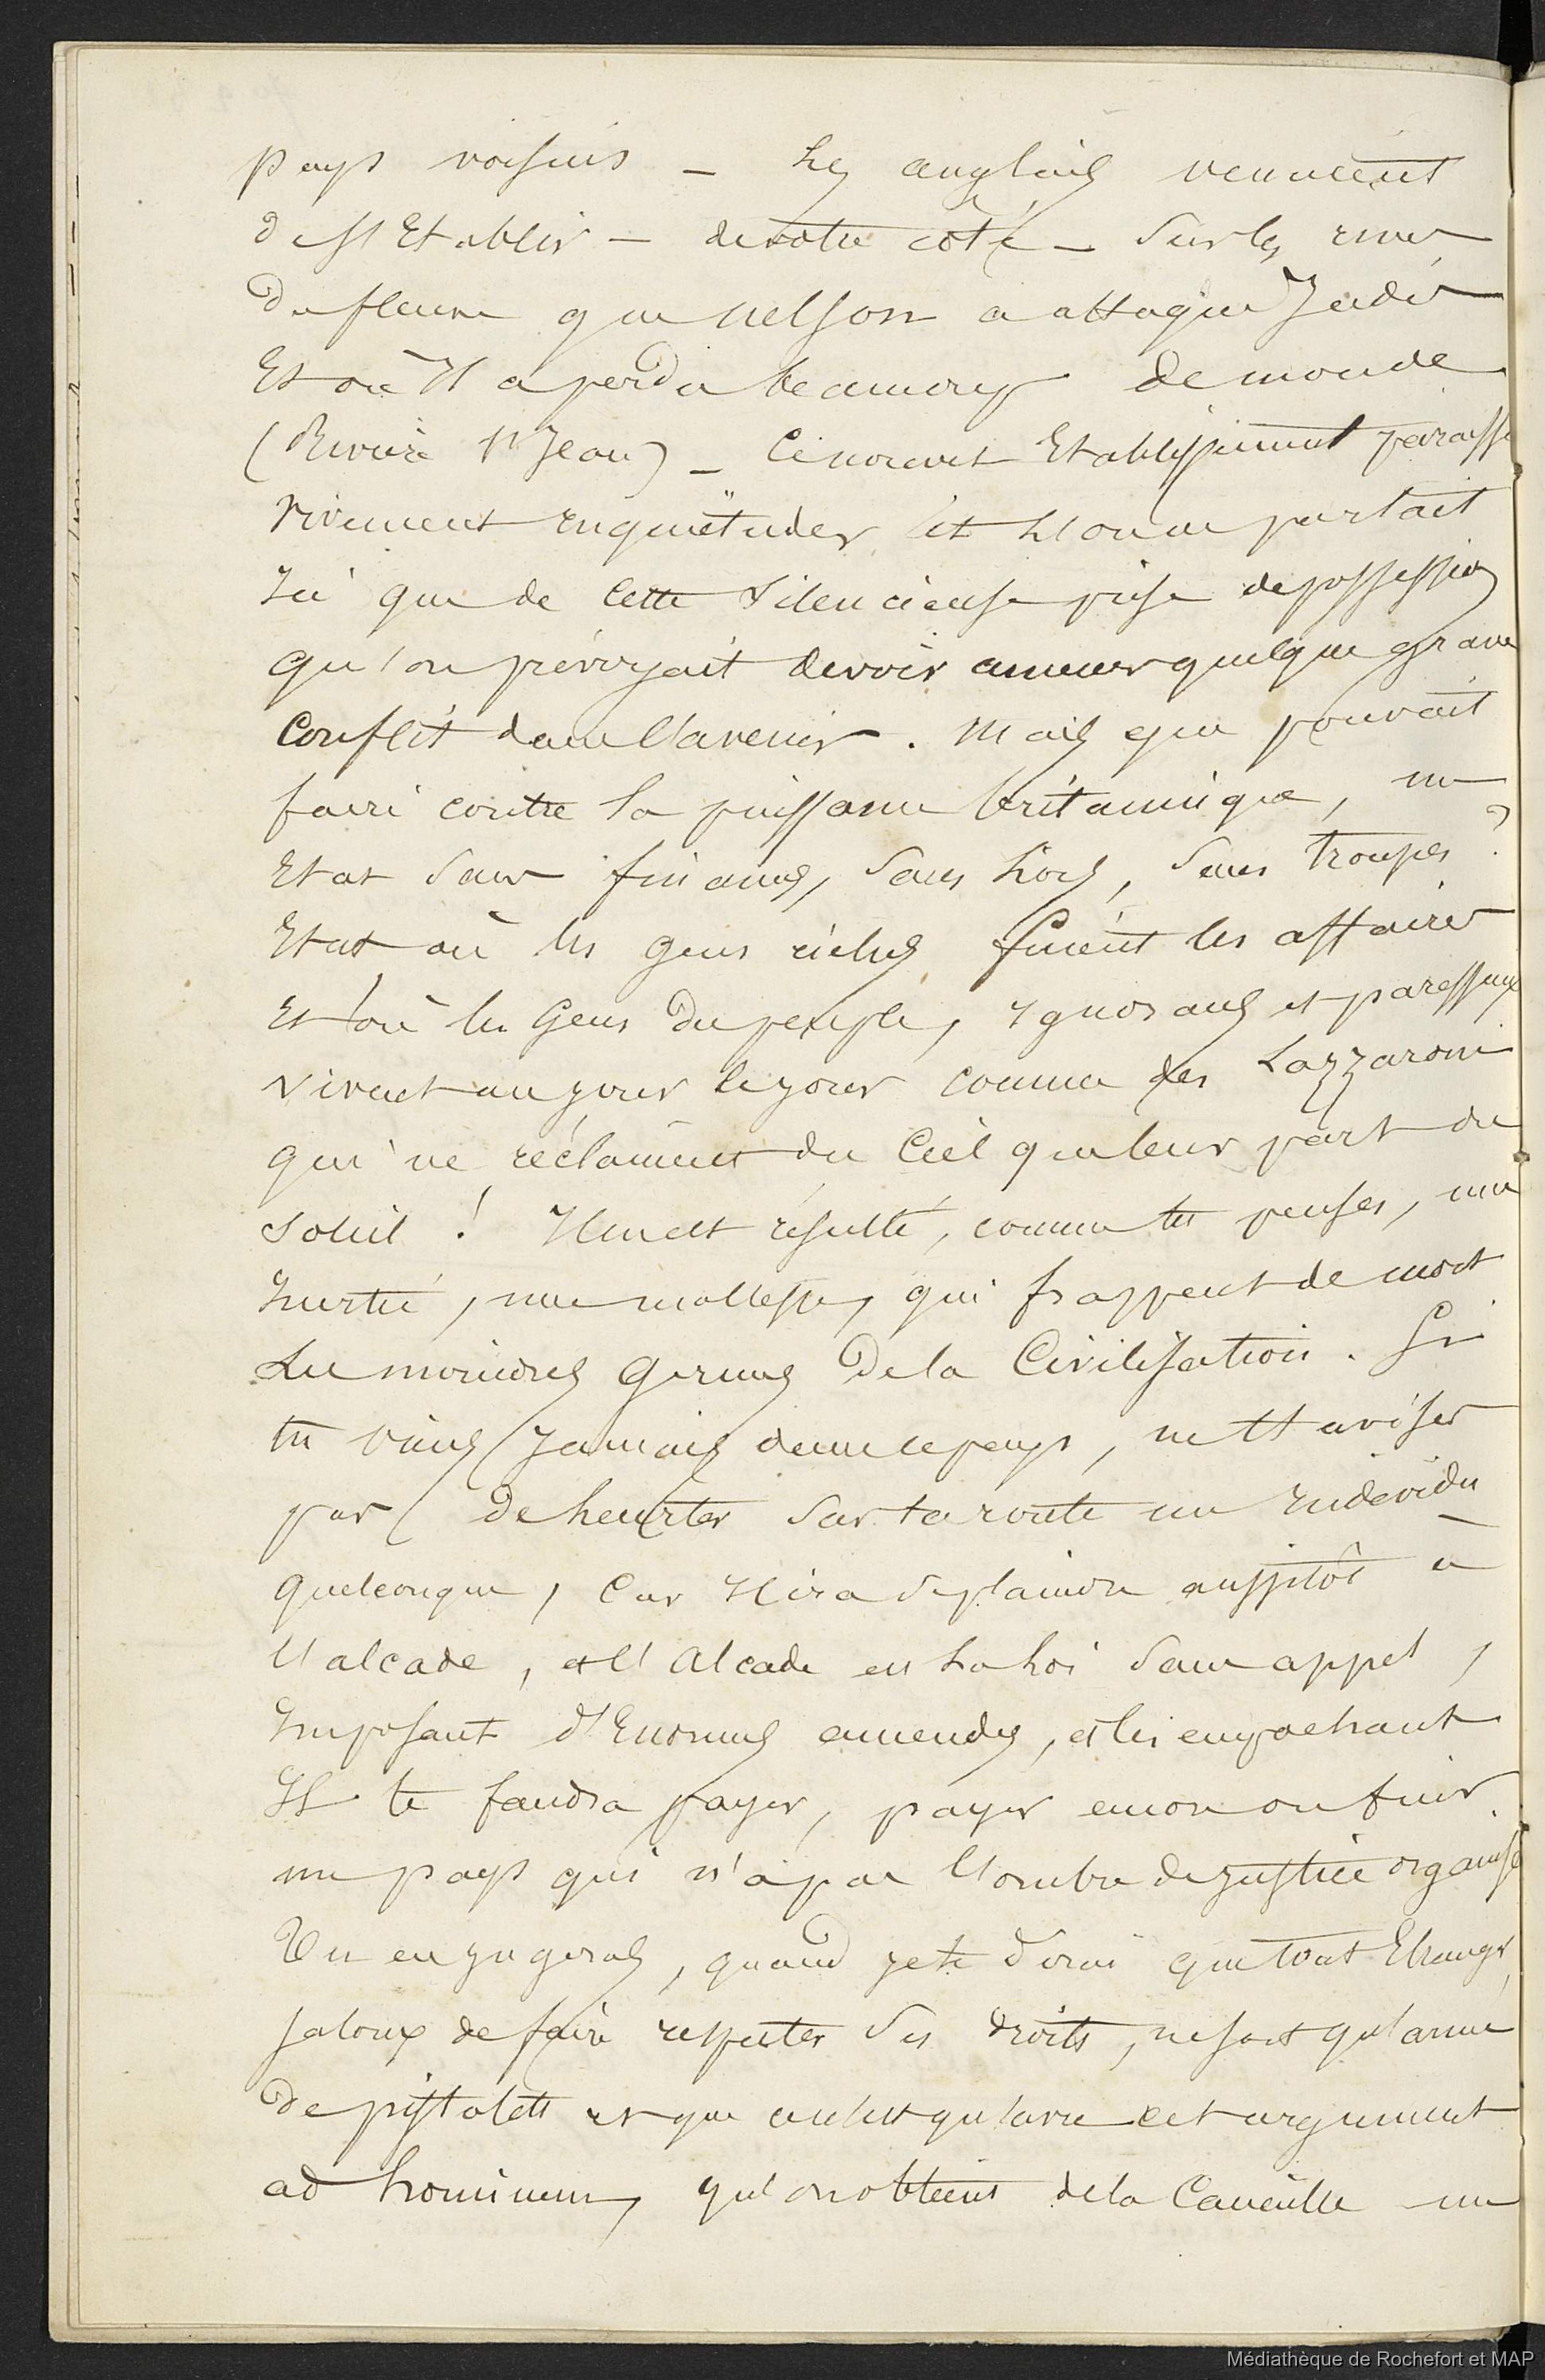 pays voisins — les anglais venaient
de s'Etablir — de notre côté — sur les rives
du fleuve que nelson a attaqué Jadis
Et où Il a perdu beaucoup de monde
(Rivière St Jean) — Ce nouvel Etablissement paraissait
vivement Inquiéter et l'on ne parlait
Ici que de Cette silencieuse prise de possession
qu'on prévoyait devoir amener quelque grave
Conflit dans l'avenir. Mais que pouvait
faire contre la puissance britannique, un
Etat sans finances, sans Lois, sans troupes ?
Etat où les gens riches fuient les affaires
Et où les Gens du peuple, Ignorans et paresseux
vivent au jour le jour comme des Lazzaroni
qui ne réclament du Ciel que leur part du
soleil ! Il en est résulté, comme tu penses, une
Inertie, une mollesse, qui frappent de mort
Les moindres Germes de la Civilisation. Si
tu viens Jamais dans ce pays, ne t'avises
pas de heurter sur ta route un Individu
quelconque, Car Il ira se plaindre aussitôt à
l'alcade, et l'Alcade est La Loi sans appel,
Imposant d'Enormes amendes, et les empochant
Il te faudra payer, payer encore ou fuir
un pays qui n'a pas l'ombre de justice organisée
Tu en jugeras, quand je te dirai que tout Etranger,
Jaloux de faire respecter ses droits, ne sort qu'armé
de pistolets et que ce n'est qu'avec cet argument
ad hominem, qu'on obtient de la Canaille un
Médiathèque de Rochefort et MAP